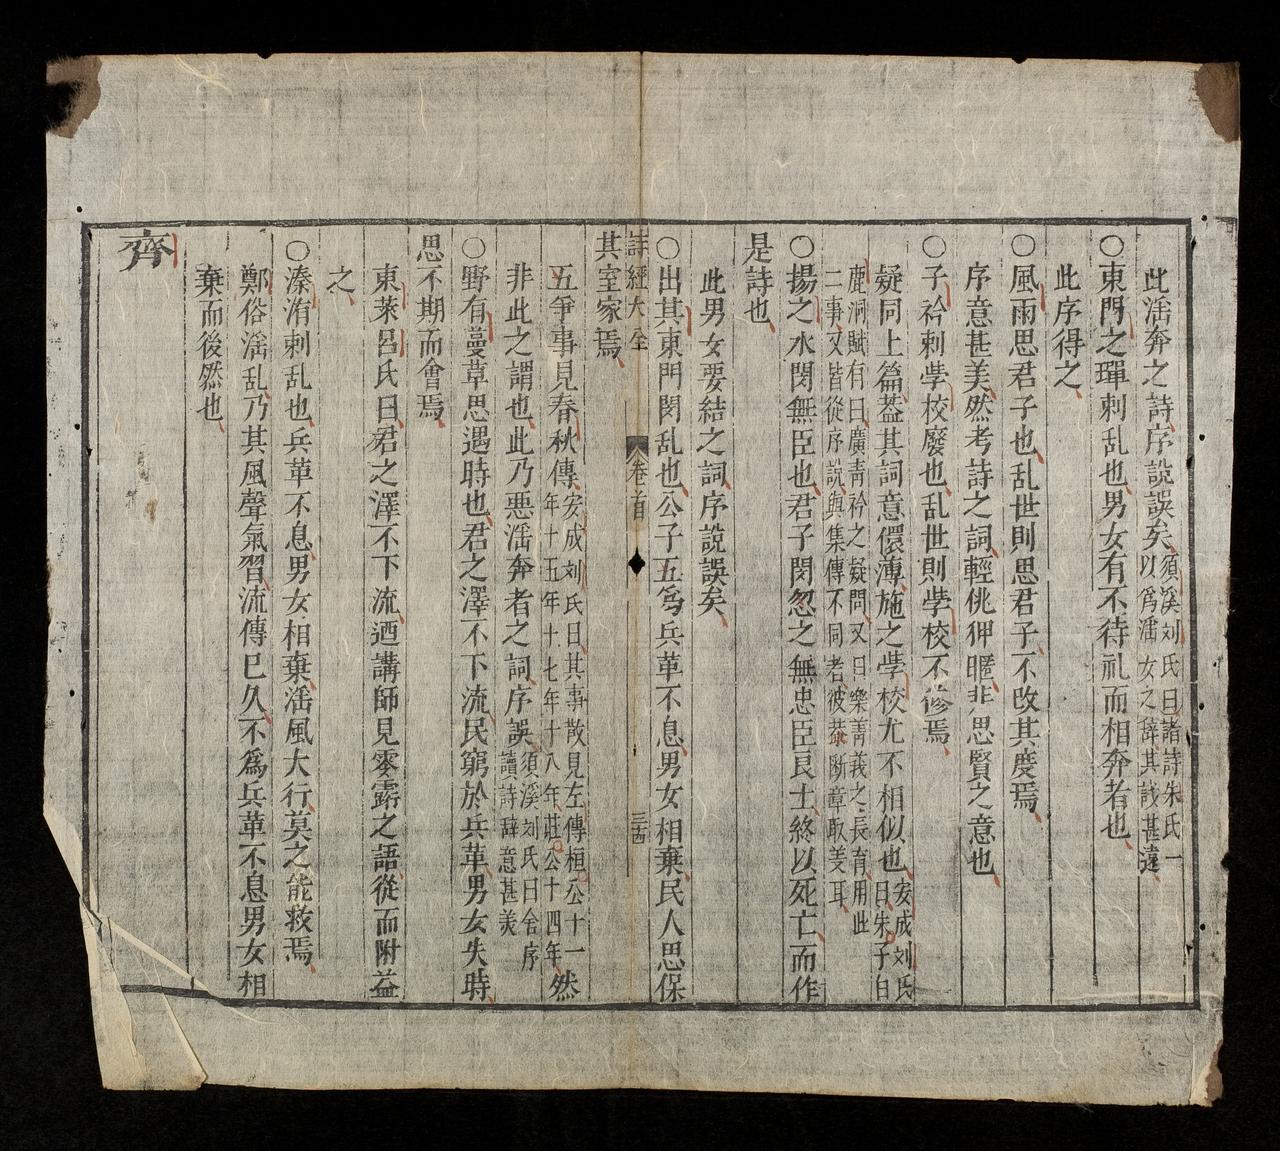 此滛奔之詩序說誤矣須溪刘氏曰諸詩朱氏一以爲滛女之辞其誠甚遠
東門之墠刺乱也男女有不待礼而相奔者也
此序得之
〇風雨思君子也乱世則思君子不改其度焉
序意甚美然考詩之詞輕佻狎暱非思賢之意也
〇子衿刺斈校廢也乱世則斈校不修焉
疑同上篇葢其詞意儇薄施之斈校尤不相似也安成刘氏曰朱子白
鹿洞賦有曰廣青衿之疑問又曰樂菁莪之長育用此二事又皆從序說與集傳不同者彼葢断章取义耳
〇揚之水閔無臣也君子閔忽之無忠臣良士終以死亡而作
是詩也
此男女要結之詞序說誤矣
〇出其東門閔乱也公子五爭兵革不息男女相棄民人思保
詩經大全 卷首 三十四
其室家焉
五爭事見春秋傳安成刘氏曰其事散見左傳桓公十一年十五年十七年十八年莊公十四年然
非此之謂也此乃惡滛奔者之詞序誤須溪刘氏曰舍序讀詩辞意甚美
〇野有蔓草思遇時也君之澤不下流民窮於兵革男女失時
思不期而會焉
東萊呂氏曰君之澤不下流迺講師見零露之語從而附益
之
〇溱洧刺乱也兵革不息男女相棄滛風大行莫之能救焉
鄭俗滛乱乃其風聲氣習流傳已久不爲兵革不息男女相
棄而後然也
齊